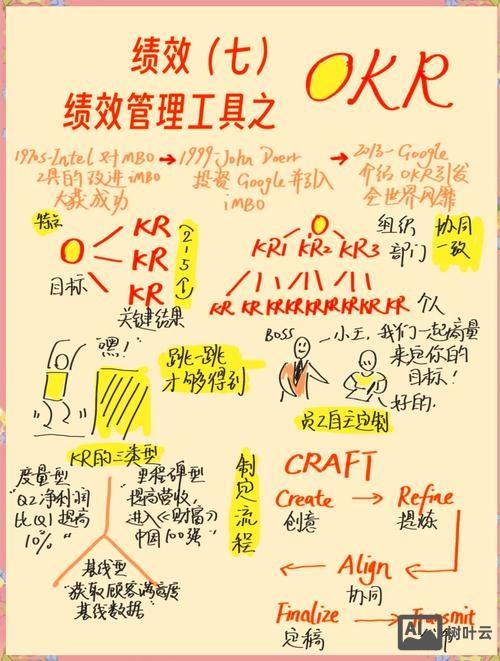 绩效（七）
绩效管理工具之
OKR
1970s-Intel对MBO
工具的改进iMBO
大获成功
1999-John Doerr
投资Google并引入
iMBO
2013-Google
介绍OKR引发
全世界风靡
特点
O
目标
KR
KR
KR
(2-5个)
关键结果
O
KR1 KR2 KR3
KR KR KR KR KR KR KR KR
组织
部门
个人
协同
一致
嘿！
跳一跳
才够得到
BOSS
小王，我们一起商量
来定你的
目标！
好的.
员工自主定制
KR的三类型
度量型
"Q2净利润
比Q1提高
10%"
里程碑型
"提高营收，
进入《财富》
中国100强"
基线型
"获取顾客满意度
基线数据"
制定流程
CRAFT
Create → Refine
创意
提炼
Align
协同
Finalize
定稿
Transmit
树叶云